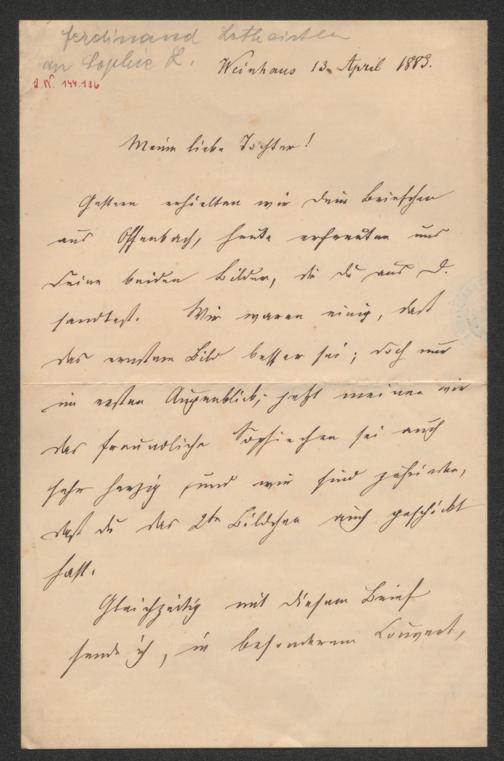 Ferdinand Lotheissen
an Sophie L.
I.N. 144.136
Weinhaus 13. April 1883.
Meine liebe Tochter!
Gestern erhielten wir dein Briefchen
aus Offenbach, heute erfreuten uns
deine beiden Bilder, die du aus D.
sandtest. Wir waren einig, daß
das ernstere Bild besser sei; doch nur
im ersten Augenblick; jetzt meinen wir
das freundliche Sophiechen sei auch
sehr herzig, und wir sind zufrieden,
daß du das 2te Bildchen auch geschickt
hast.
Gleichzeitig mit diesem Brief
sende ich, in besonderem Couvert,